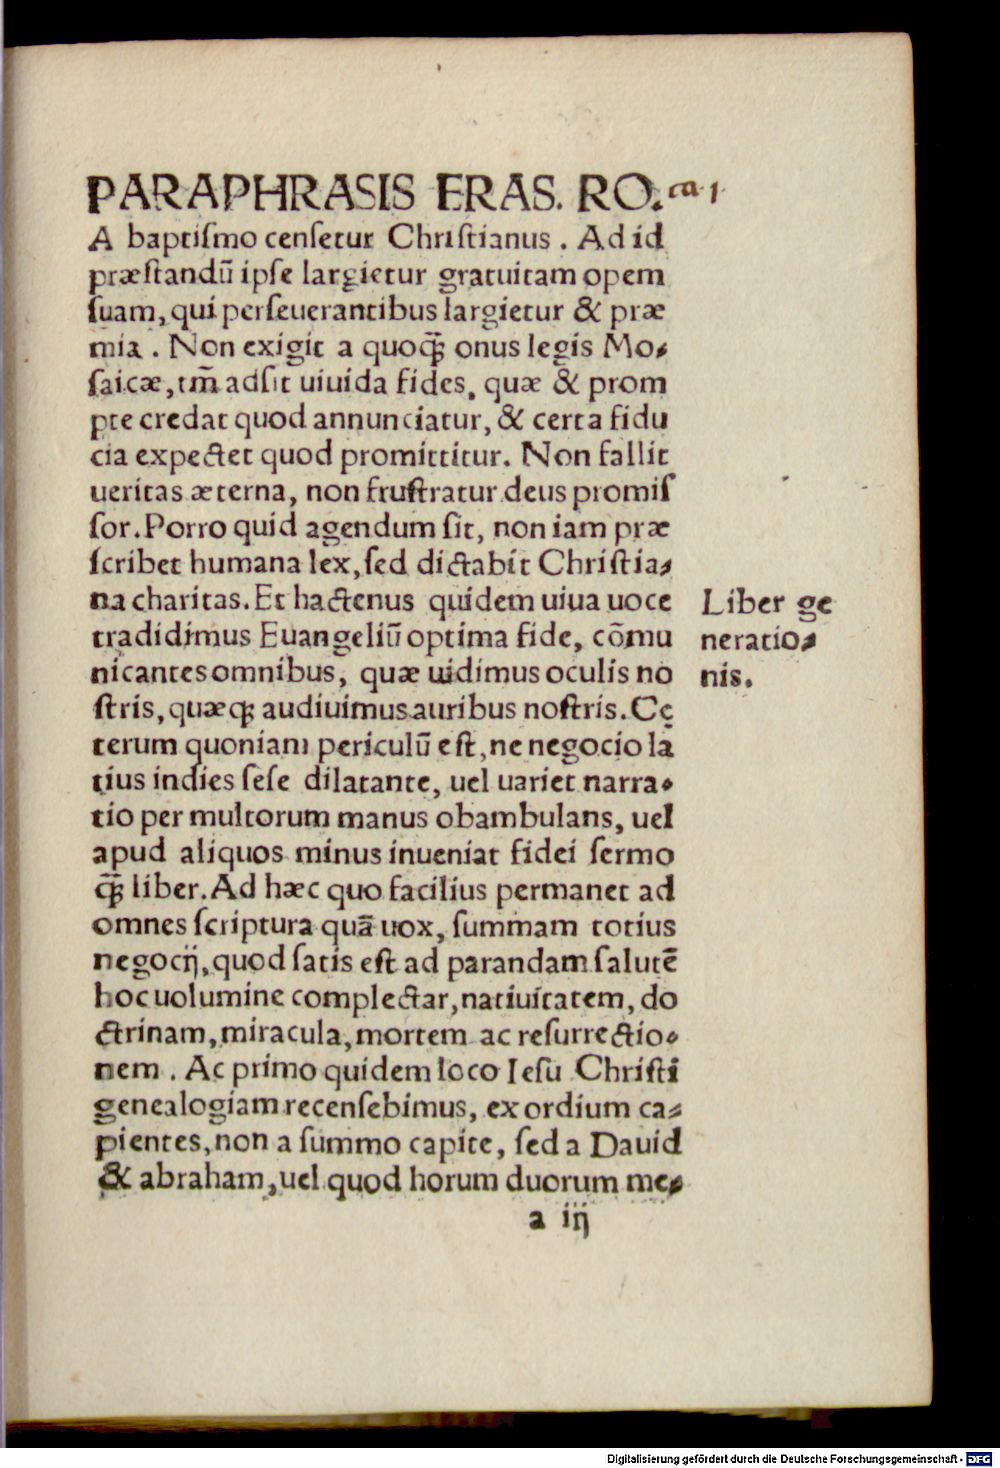 PARAPHRASIS ERAS. RO. ca. 1.
A baptiſmo cenſetur Chriſtianus . Ad id
præſtandū ipſe largietur gratuitam opem
ſuam, qui perſeuerantibus largietur & præ
mia . Non exigit a quoqꝫ onus legis Mo⸗
ſaicæ, tm̄ adſit uiuida fides, quæ & prom
pte credat quod annunciatur, & certa fidu
cia expectet quod promittitur. Non fallit
ueritas æterna, non fruſtratur deus promiſ
ſor. Porro quid agendum ſit, non iam præ
ſcribet humana lex, ſed dictabit Chriſtia⸗
na charitas. Et hactenus quidem uiua uoce
tradidimus Euangeliū optima fide, cōmu
nicantes omnibus, quæ uidimus oculis no
ſtris, quæqꝫ audiuimus auribus noſtris. Cę
terum quoniam periculū eſt, ne negocio la
tius indies ſeſe dilatante, uel uariet narra⸗
tio per multorum manus obambulans, uel
apud aliquos minus inueniat fidei ſermo
q̄ꝫ liber. Ad hæc quo facilius permanet ad
omnes ſcriptura quā uox, ſummam totius
negocij, quod ſatis eſt ad parandam ſalutē
hoc uolumine complectar, natiuitatem, do
ctrinam, miracula, mortem ac reſurrectio⸗
nem . Ac primo quidem loco Ieſu Chriſti
genealogiam recenſebimus, exordium ca⸗
pientes, non a ſummo capite, ſed a Dauid
& abraham, uel quod horum duorum me⸗
a iij
Liber ge
neratio⸗
nis.
Digitalisierung gefördert durch die Deutsche Forschungsgemeinschaft - DFG